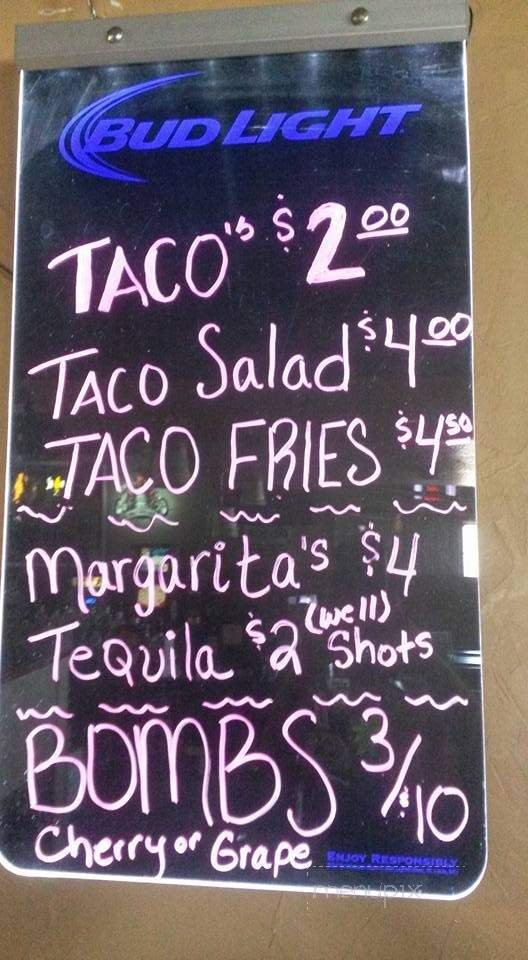 BUD LIGHT
TACO'S $2.00
TACO Salad $4.00
TACO FRIES $4.50
Margarita's $4
Tequila $2 (well) Shots
BOMBS 3/$10
Cherry or Grape
ENJOY RESPONSIBLY
menupix